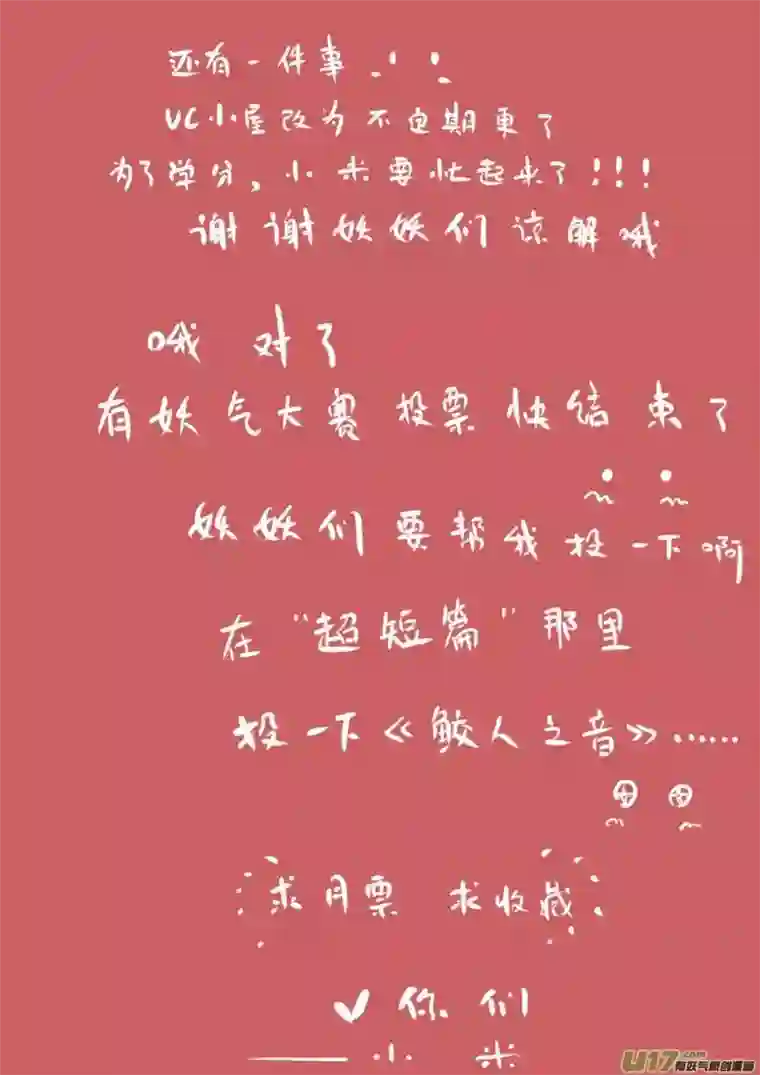 还有一件事
VC小屋改为不定期更了
为了学分,小米要忙起来了!!!
谢谢妖妖们谅解哦
哦 对了
有妖气大赛投票快结束了
妖妖们要帮我投一下啊
在"超短篇"那里
投一下《鲛人之音》……
求月票 求收藏
你们
——小米
U17.com
有妖气原创漫画